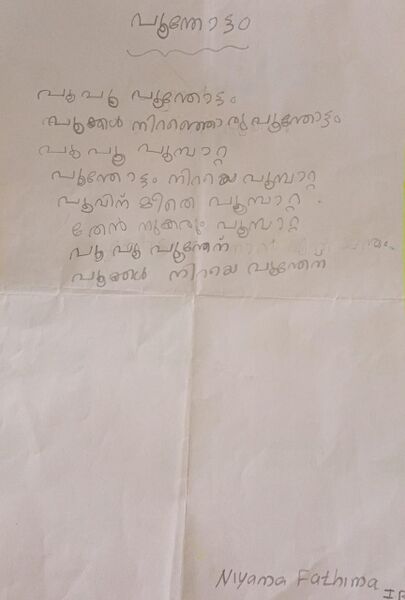 പൂന്തോട്ടം
പൂ പൂ പൂന്തോട്ടം
പൂക്കൾ നിറഞ്ഞൊരു പൂന്തോട്ടം
പൂ പൂ പൂമ്പാറ്റ
പൂന്തോട്ടം നിറയെ പൂമ്പാറ്റ
പൂവിന് മീതെ പൂമ്പാറ്റ
തേൻ നുകരും പൂമ്പാറ്റ
പൂ പൂ പൂന്തേന്
പൂക്കൾ നിറയെ പൂന്തേന്
Niyama Fathima